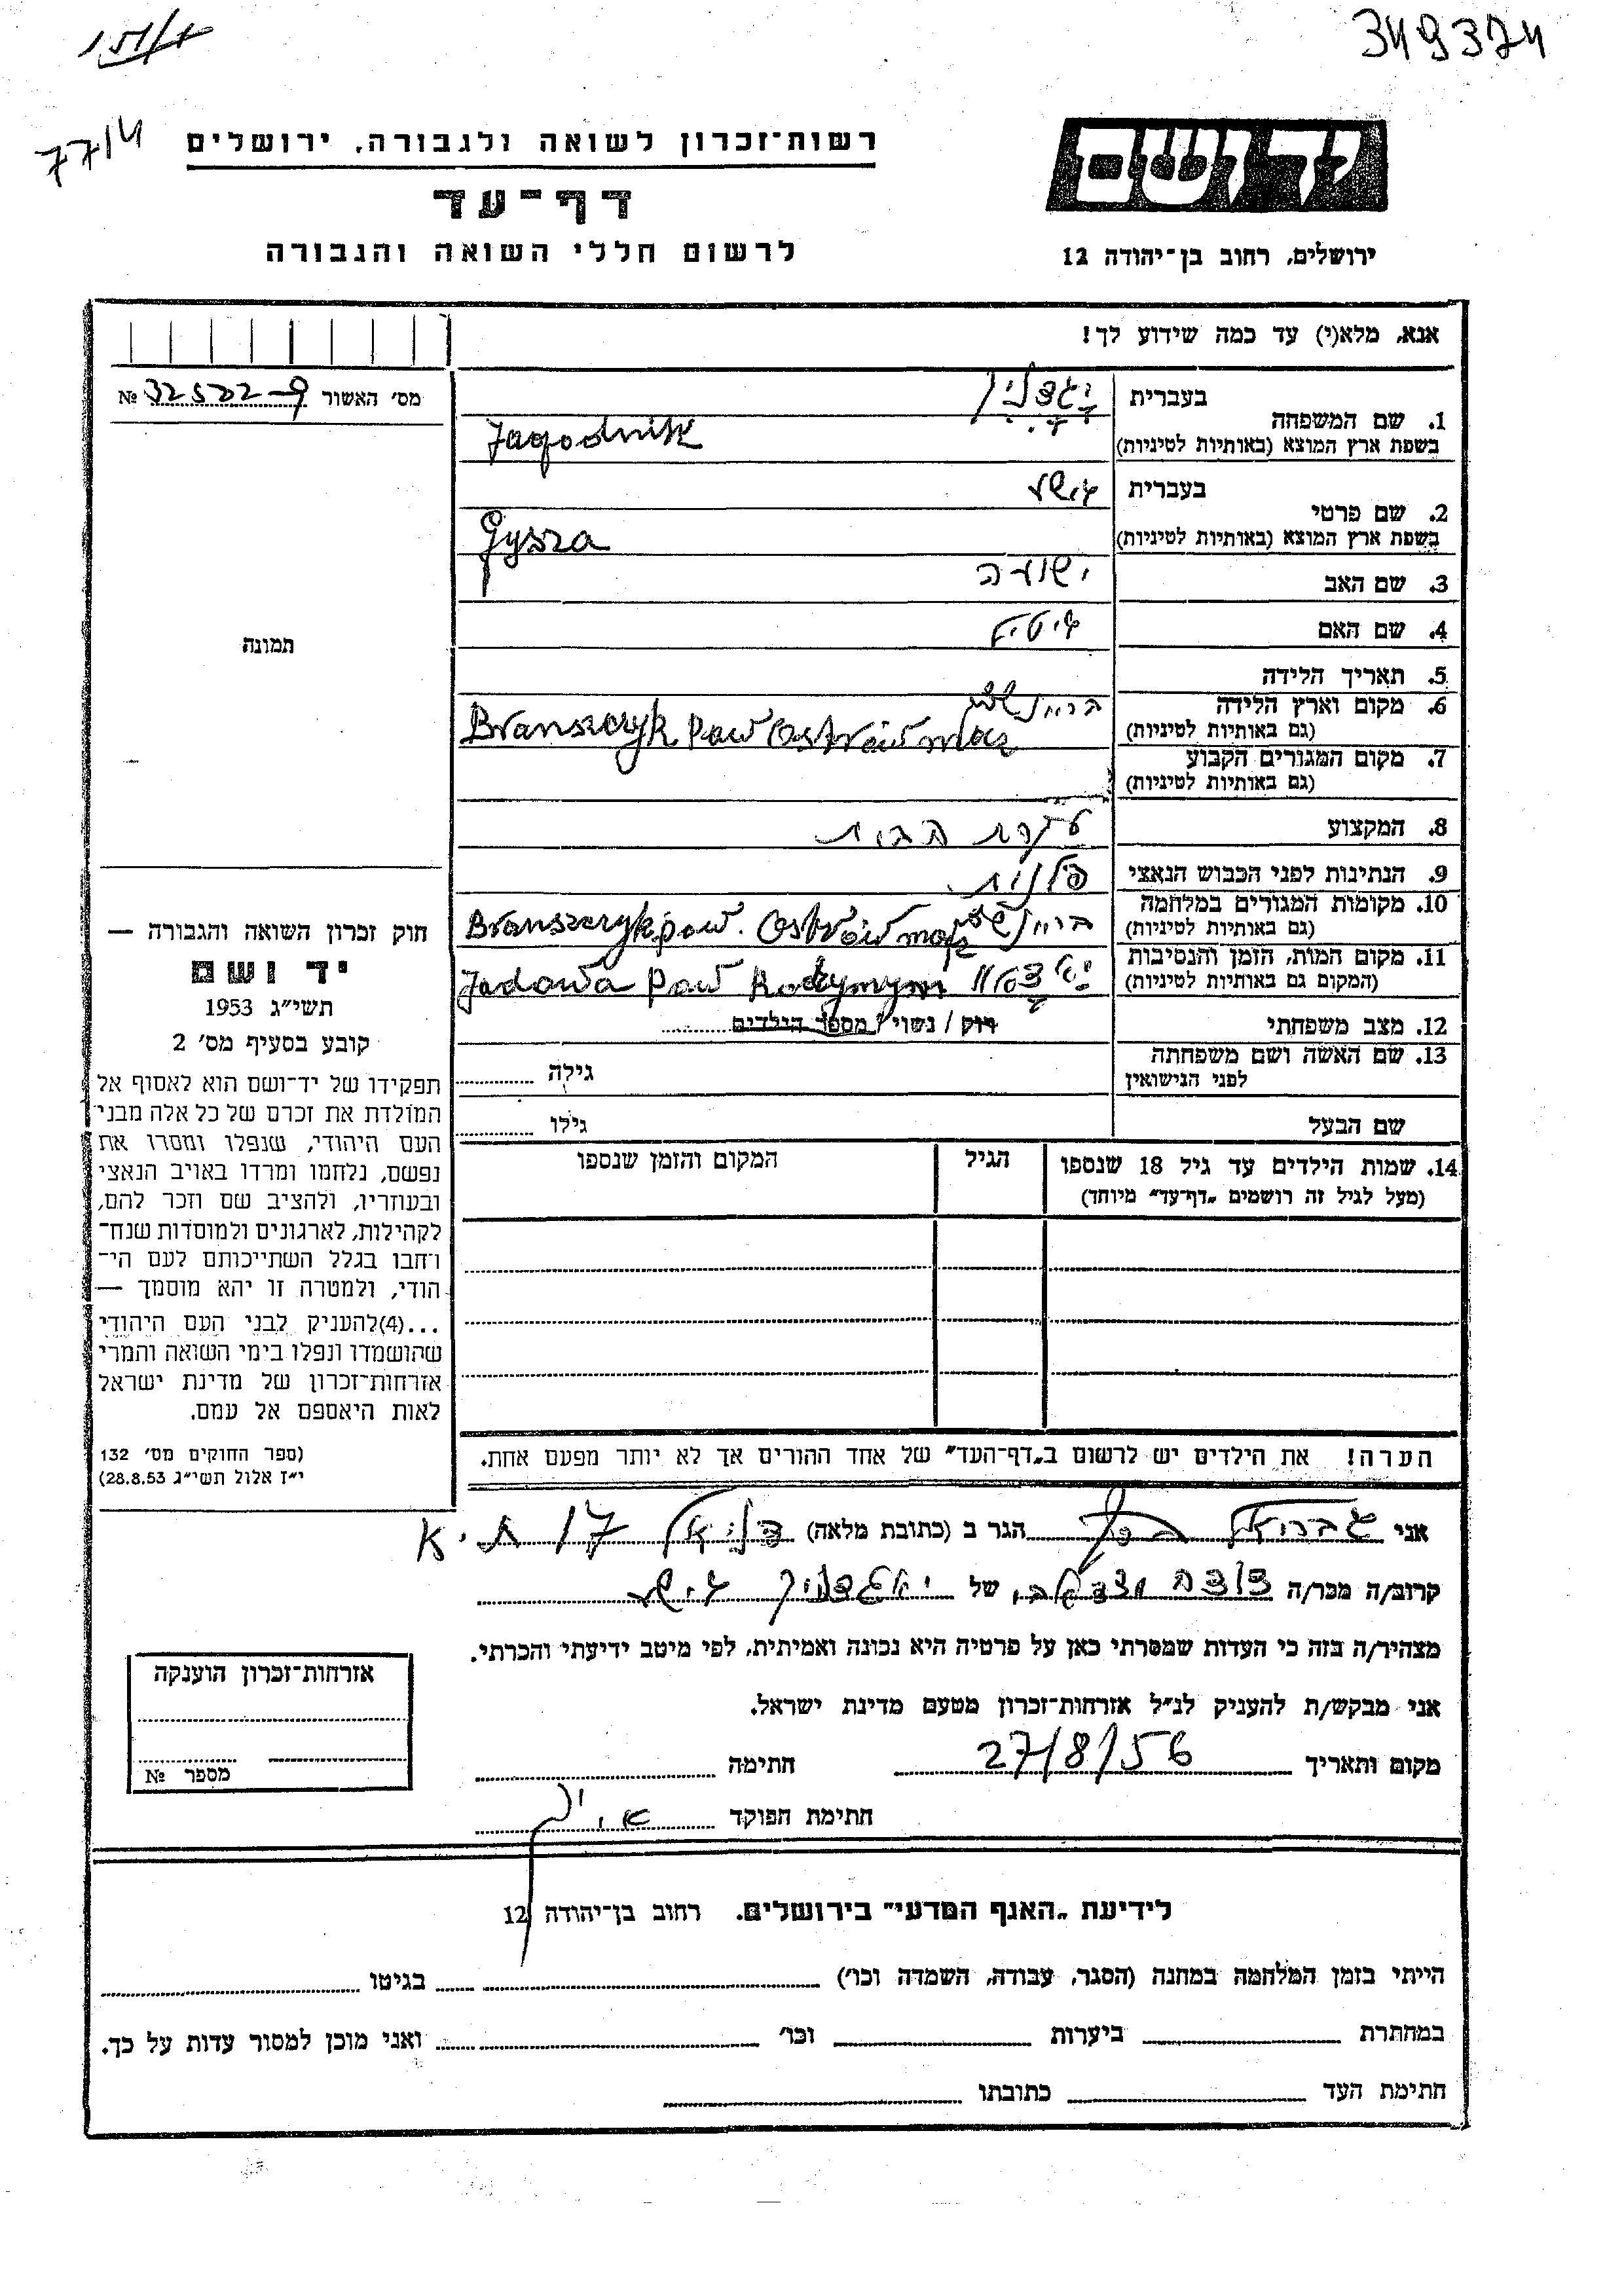 349374
77/4
יד ושם
רשות־זכרון לשואה ולגבורה, ירושלים
דף־עד
לרשום חללי השואה והגבורה
ירושלים, רחוב בן־יהודה 12
אנא, מלא(י) עד כמה שידוע לך!
מס' האשור № 32522-9
1. שם המשפחה
בעברית
בשפת ארץ המוצא (באותיות לטיניות) Jagodnik
2. שם פרטי
בעברית
בשפת ארץ המוצא (באותיות לטיניות) Gysza
3. שם האב
4. שם האם
5. תאריך הלידה
6. מקום וארץ הלידה
(גם באותיות לטיניות) Branszczyk Pow Ostrów maz
7. מקום המגורים הקבוע
(גם באותיות לטיניות)
8. המקצוע עקרת הבית
9. הנתינות לפני הכבוש הנאצי פלנית
10. מקומות המגורים במלחמה
(גם באותיות לטיניות) Branszczyk pow. Ostrów maz
11. מקום המות, הזמן והנסיבות
(המקום גם באותיות לטיניות) Jadowa Pow
12. מצב משפחתי רוק / נשוי / מספר הילדים
13. שם האשה ושם משפחתה
לפני הנישואין
גילה
שם הבעל
גילו
14. שמות הילדים עד גיל 18 שנספו
(מעל לגיל זה רושמים „דף־עד" מיוחד)
הגיל
המקום והזמן שנספו
הערה! את הילדים יש לרשום ב„דף־העד" של אחד ההורים אך לא יותר מפעם אחת.
תמונה
חוק זכרון השואה והגבורה —
יד ושם
תשי״ג 1953
קובע בסעיף מס' 2
תפקידו של יד־ושם הוא לאסוף אל
המולדת את זכרם של כל אלה מבני
העם היהודי, שנפלו ומסרו את
נפשם, נלחמו ומרדו באויב הנאצי
ובעוזריו, ולהציב שם וזכר להם,
לקהילות, לארגונים ולמוסדות שנח־
רחבו בגלל השתייכותם לעם הי־
הודי, ולמטרה זו יהא מוסמך —
...(4) להעניק לבני העם היהודי
שהושמדו ונפלו בימי השואה והמרי
אזרחות־זכרון של מדינת ישראל
לאות היאספם אל עמם.
(ספר החוקים מס' 132
י״ז אלול תשי״ג 28.8.53)
אני גבריאל הגר ב (כתובת מלאה) ת.א
קרוב/ה מכר/ה של יאגדניק
מצהיר/ה בזה כי העדות שמסרתי כאן על פרטיה היא נכונה ואמיתית, לפי מיטב ידיעתי והכרתי.
אני מבקש/ת להעניק לנ״ל אזרחות־זכרון מטעם מדינת ישראל.
מקום ותאריך 27/8/56 חתימה
חתימת הפוקד
אזרחות־זכרון הוענקה
מספר №
לידיעת „האגף המדעי" בירושלים, רחוב בן־יהודה 12
הייתי בזמן המלחמה במחנה (הסגר, עבודה, השמדה וכו') בגיטו
במחתרת ביערות וכו' ואני מוכן למסור עדות על כך.
חתימת העד כתובתו